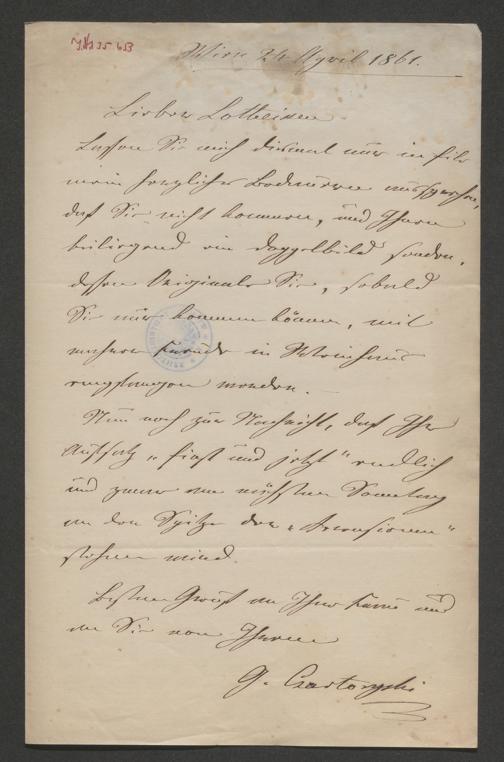 J.N. 35 653
Wien 24 April 1861.
Lieber Lotheissen
Lassen Sie mich diesmal nur in Eile
mein herzliches Bedauern aussprechen,
daß Sie nicht kommen, und Ihnen
beiliegend ein Doppelbild senden,
dessen Originale Sie, sobald
Sie nur kommen können, mit
wahrer Freude in Weinhaus
empfangen werden. –
Nun noch zur Nachricht, daß Ihr
Aufsatz „Einst und jetzt“ endlich
und zwar am nächsten Samstag
an der Spitze der „Recensionen“
stehen wird.
Besten Gruß an Ihre Frau und
an Sie von Ihrem
G. Czartoryski